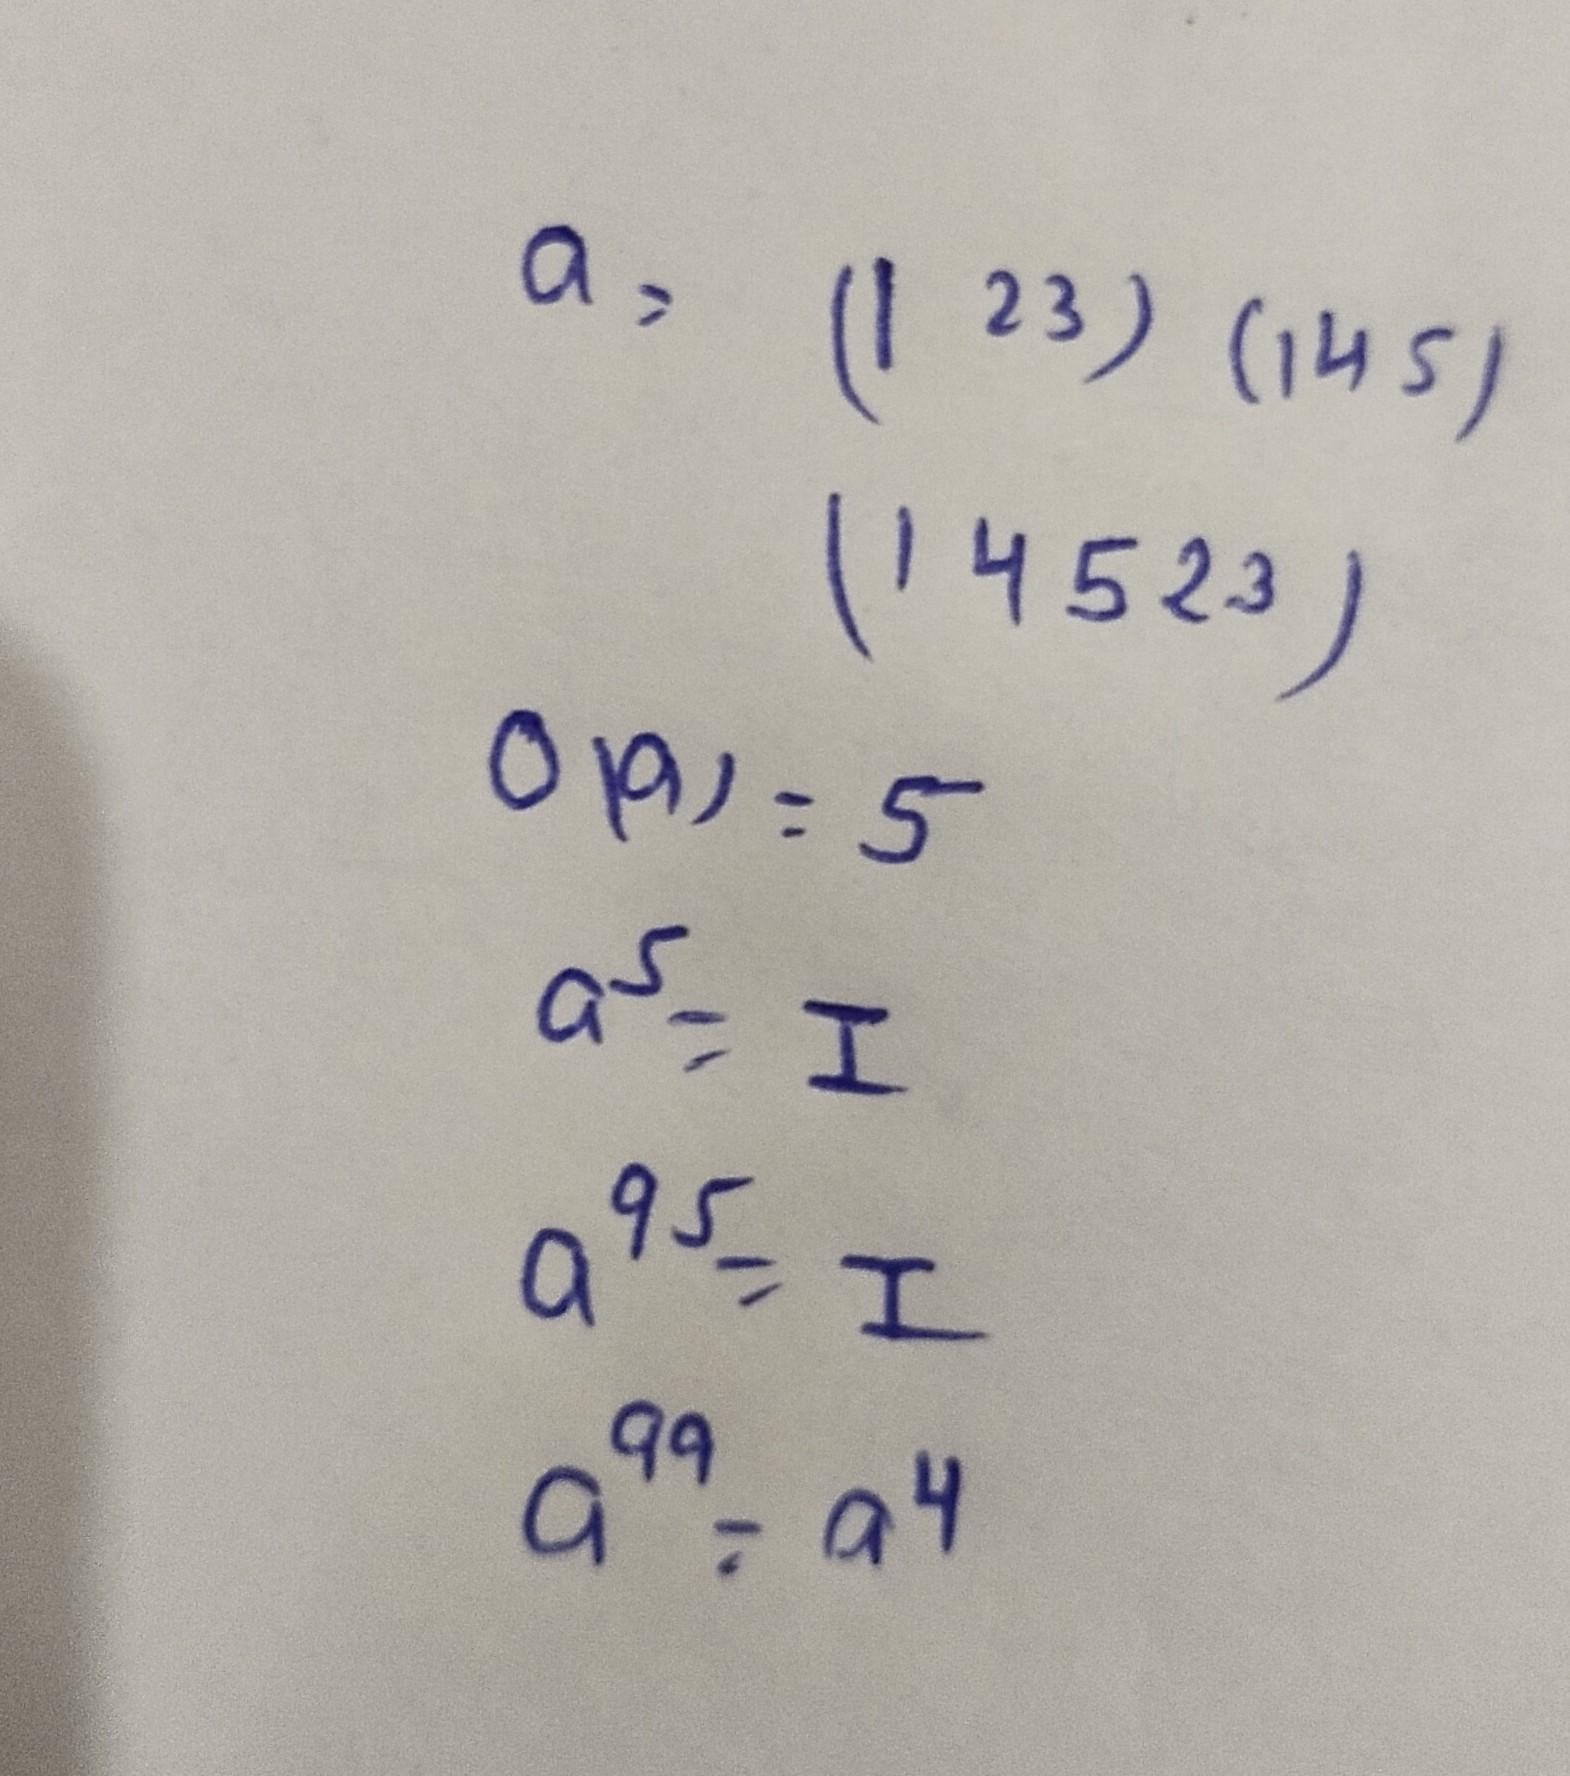 a = (1 23) (145)
(1 4 5 2 3)
O(a) = 5
a⁵ = I
a⁹⁵ = I
a⁹⁹ = a⁴